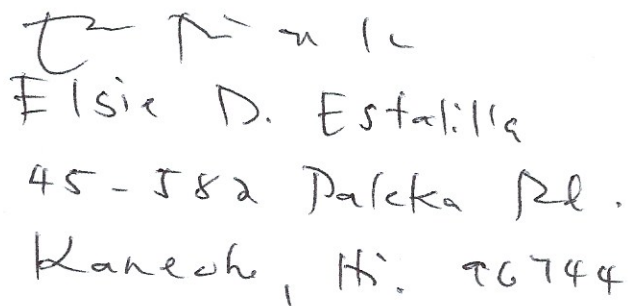 Elsie D. Estalilla
45-582 Paleka Rd.
Kaneohe, Hi. 96744